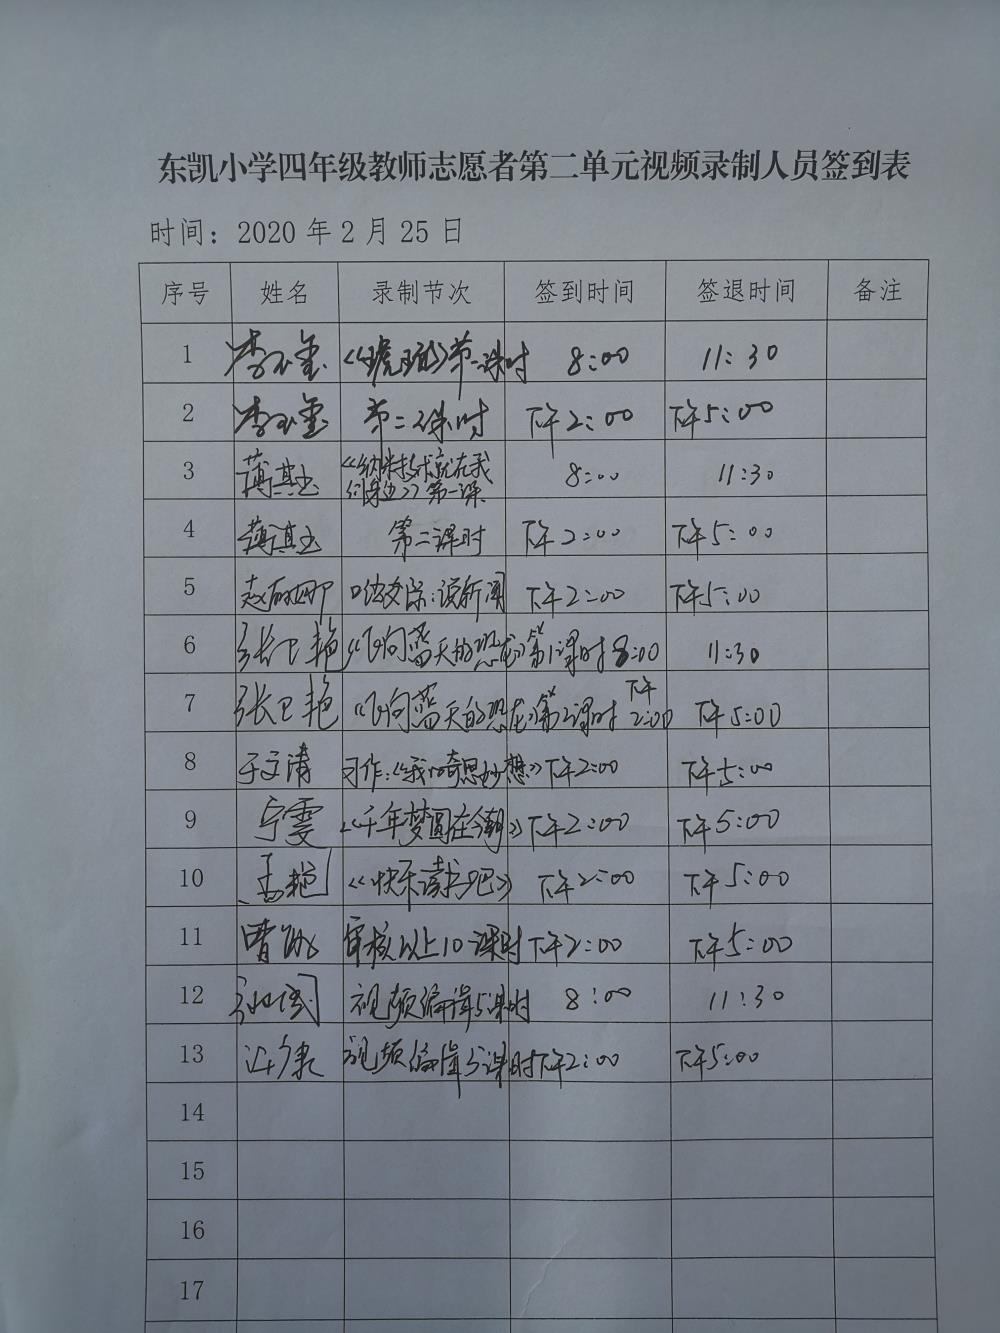 东凯小学四年级教师志愿者第二单元视频录制人员签到表
时间：2020 年 2 月 25 日
序号 姓名 录制节次 签到时间 签退时间 备注
1 李玉玺 《琥珀》第一课时 8:00 11:30
2 李玉玺 第二课时 下午2:00 下午5:00
3 薄其玉 《纳米技术就在我
们身边》第一课 8:00 11:30
4 薄其玉 第二课时 下午2:00 下午5:00
5 赵 娜 口语交际:说新闻 下午2:00 下午5:00
6 张卫艳 《飞向蓝天的恐龙》第1课时 8:00 11:30
7 张卫艳 《飞向蓝天的恐龙》第2课时 下午2:00 下午5:00
8 于文清 习作:《我的奇思妙想》 下午2:00 下午5:00
9 宁雯 《千年梦圆在今朝》 下午2:00 下午5:00
10 孟艳 《快乐读书吧》 下午2:00 下午5:00
11 审核以上10课时 下午2:00 下午5:00
12 视频编辑5课时 8:00 11:30
13 视频编辑5课时 下午2:00 下午5:00
14
15
16
17